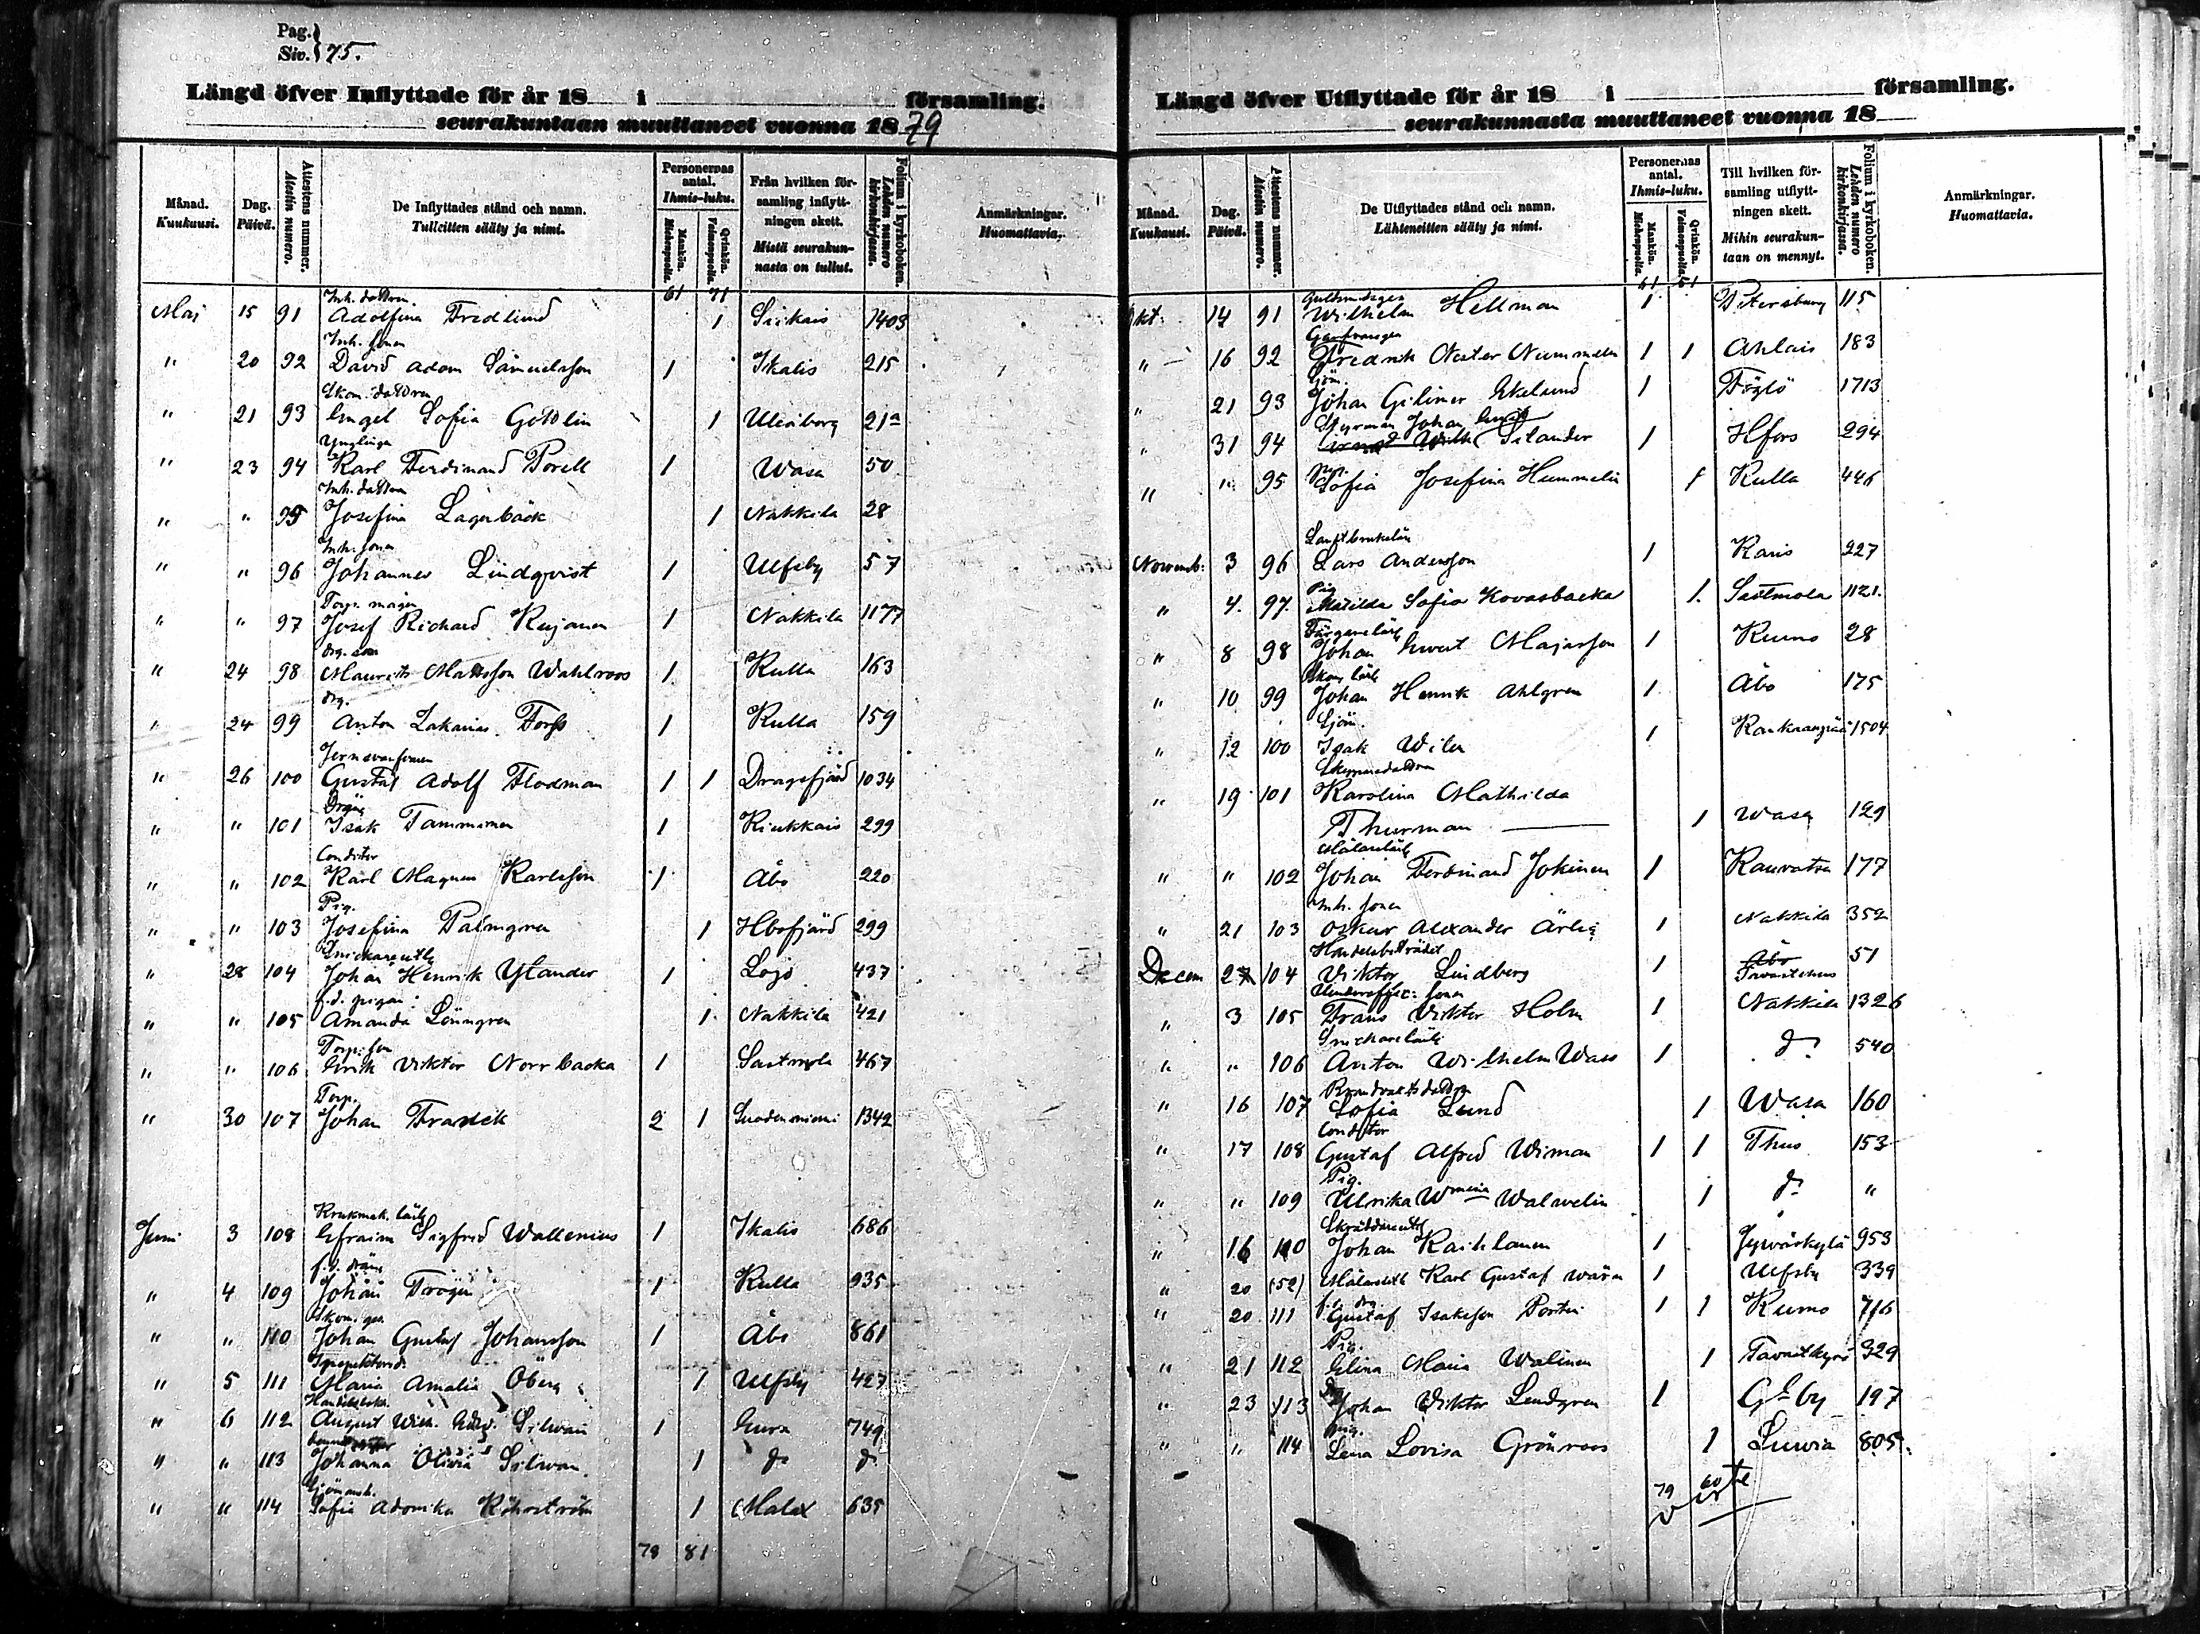 Pag.
Siv. 75.
Längd öfver Inflyttade för år 18 i församling.
seurakuntaan muuttaneet vuonna 1879
Månad. Kuukausi.
Dag. Päivä.
Attestens nummer. Atestin numero.
De Inflyttades stånd och namn.
Tulleitten sääty ja nimi.
Personernas antal. Ihmis-luku.
Mankön. Miehenpuolta.
Qvinkön. Vaimonpuolta.
Från hvilken församling inflyttningen skett.
Mistä seurakunnasta on tullut.
Folium i kyrkoboken. Lehden numero kirkonkirjassa.
Anmärkningar. Huomattavia.
61 71
Inh. dottren
Maj 15 91 Adolfina Fredlund 1 Siikais 1403
Inh. sonen
" 20 92 David Adam Samuelsson 1 Ikalis 215
Skom. dottren
" 21 93 Engel Sofia Gottlin 1 Uleåborg 21a
Ynglinge
" 23 94 Karl Ferdinand Porell 1 Wasa 50
Inh. dottren
" " 95 Josefina Lagerbäck 1 Nakkila 28
Inh. sonen
" " 96 Johannes Lindqvist 1 Ulfsby 57
Torp. mågen
" " 97 Josef Richard Kujanen 1 Nakkila 1177
drg. son
" 24 98 Maurits Mattsson Wahlroos 1 Kulla 163
drg.
" 24 99 Anton Zakarias Forss 1 Kulla 159
" 26 100 Gustaf Adolf Flodman 1 1 Dragsfjärd 1034
Dräng
" " 101 Isak Tamminen 1 Kiukkais 299
Conditor
" " 102 Karl Magnus Karlsson 1 Åbo 220
Pig.
" " 103 Josefina Palmgren 1 Hbofjärd 299
Snickareutl.
" 28 104 Johan Henrik Ylander 1 Lojo 437
f.d. pigan:
" " 105 Amanda Lönngren 1 Nakkila 421
Torp. son
" " 106 Erik Viktor Norrbacka 1 Sastmola 467
Torp.
" 30 107 Johan Franck 2 1 Suodenniemi 1342
Krukmak. lärl.
Juni 3 108 Efraim Sigfred Wallenius 1 Ikalis 686
f.d. dräng
" 4 109 Johan Frögen 1 Kulla 935
Skom. ges.
" " 110 Johan Gustaf Johansson 1 Åbo 861
Inspektorsd.
" 5 111 Maria Amalia Öberg 1 Ulfsby 427
Handelsbok.
" 6 112 August Wilh. Edw. Silwan 1 Eura 749
" " 113 Johanna Olivia Silwan 1 do do
Sjömansh.
" " 114 Sofia Adamika Röhrström 1 Malax 635
78 81
Längd öfver Utflyttade för år 18 i församling.
seurakunnasta muuttaneet vuonna 18
Månad. Kuukausi.
Dag. Päivä.
Attestens nummer. Atestin numero.
De Utflyttades stånd och namn.
Lähteneitten sääty ja nimi.
Personernas antal. Ihmis-luku.
Mankön. Miehenpuolta.
Qvinkön. Vaimonpuolta.
Till hvilken församling utflyttningen skett.
Mihin seurakuntaan on mennyt.
Folium i kyrkoboken. Lehden numero kirkonkirjassa.
Anmärkningar. Huomattavia.
61 51
Guldsmedsges
Okt. 14 91 Wilhelm Hellman 1 Petersburg 115
Garfvareges
" 16 92 Fredrik Nestor Nummelin 1 1 Ahlais 183
Sjöm.
" 21 93 Johan Gilimer Ekelund 1 Föglö 1713
Styrman Johan Emil
" 31 94 Silander 1 Hfors 294
pig.
" " 95 Sofia Josefina Hummelin 1 Kulla 446
Landtbrukselev
Novemb: 3 96 Lars Andersson 1 Karis 227
Pig
" 4. 97. Matilda Sofia Kovasbacka 1. Sastmola 1121.
Färgarelärl
" 8 98 Johan Evert Majasson 1 Kumo 28
Skom. lärl.
" 10 99 Johan Henrik Ahlgren 1 Åbo 175
Sjöm.
" 12 100 Isak Wilen 1 Kankaanpää 1504
Skepparedottren
" 19 101 Karolina Mathilda
Thurman 1 Wasa 129
Målarelärl
" " 102 Johan Ferdinand Jokinen 1 Kauvatsa 177
Inh. sonen
" 21 103 Oskar Alexander Ärlig 1 Nakkila 352
Handelsbeträdet
Decem 2 104 Viktor Lindberg 1 Åbo Tavastehus 51
Underoffic: sonen
" 3 105 Frans Viktor Holm 1 Nakkila 1326
Snickarelärl.
" " 106 Anton Wilhelm Wass 1 do 540
Brandvaktsdottren
" 16 107 Sofia Lund 1 Wasa 160
Conditor
" 17 108 Gustaf Alfred Wiman 1 1 Thus 153
Pig.
" " 109 Ulrika Wmina Walwelin 1 do "
Skräddareutl
" 16 110 Johan Raihlanen 1 Jyväskylä 953
" 20 (52) Målarelärl Karl Gustaf Wärn 1 Ulfsby 339
f.d. drg
" 20 111 Gustaf Isaksson Porttin 1 1 Kumo 716
Pig.
" 21 112 Elina Maria Walinen 1 Tavastkyrö 329
Dr.
" 23 113 Johan Viktor Lundgren 1 Glby 197
pig.
" " 114 Lena Lovisa Grönroos 1 Luvia 805.
79 60